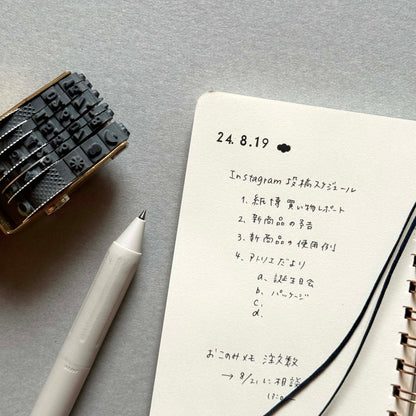 24.8.19
Instagram 投稿スケジュール
1. 紙博 買い物レポート
2. 新商品の予告
3. 新商品の使用例
4. アトリエだより
a. 誕生日会
b. パッケージ
c.
d.
おこのみメモ 注文数
→ 8/21に相談